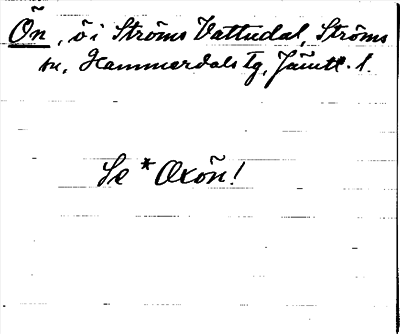 Ön, ö i Ströms Vattudal, Ströms
sn, Hammerdals tg, Jämtl. l.
Se * Oxön!